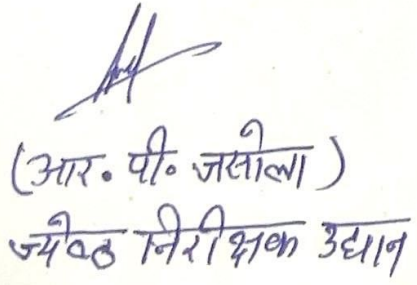 (आर. पी. जसोला)
ज्येष्ठ निरीक्षक उद्यान